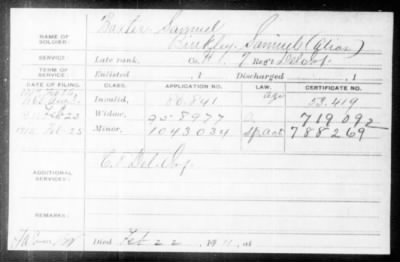 NAME OF SOLDIER: Baxter, Samuel
Binkley, Samuel (Alias)
SERVICE: Late rank, Co. H, 7 Reg't Del. Inf.
TERM OF SERVICE: Enlisted , 1 Discharged , 1
DATE OF FILING. CLASS. APPLICATION NO. LAW. CERTIFICATE NO.
Invalid, 80.841 53.419
Feb-23 Widow, 958977 719092
1912 Feb-25 Minor, 1043034 788269
ADDITIONAL SERVICES:
REMARKS:
Died Feb 22 , 1911, at